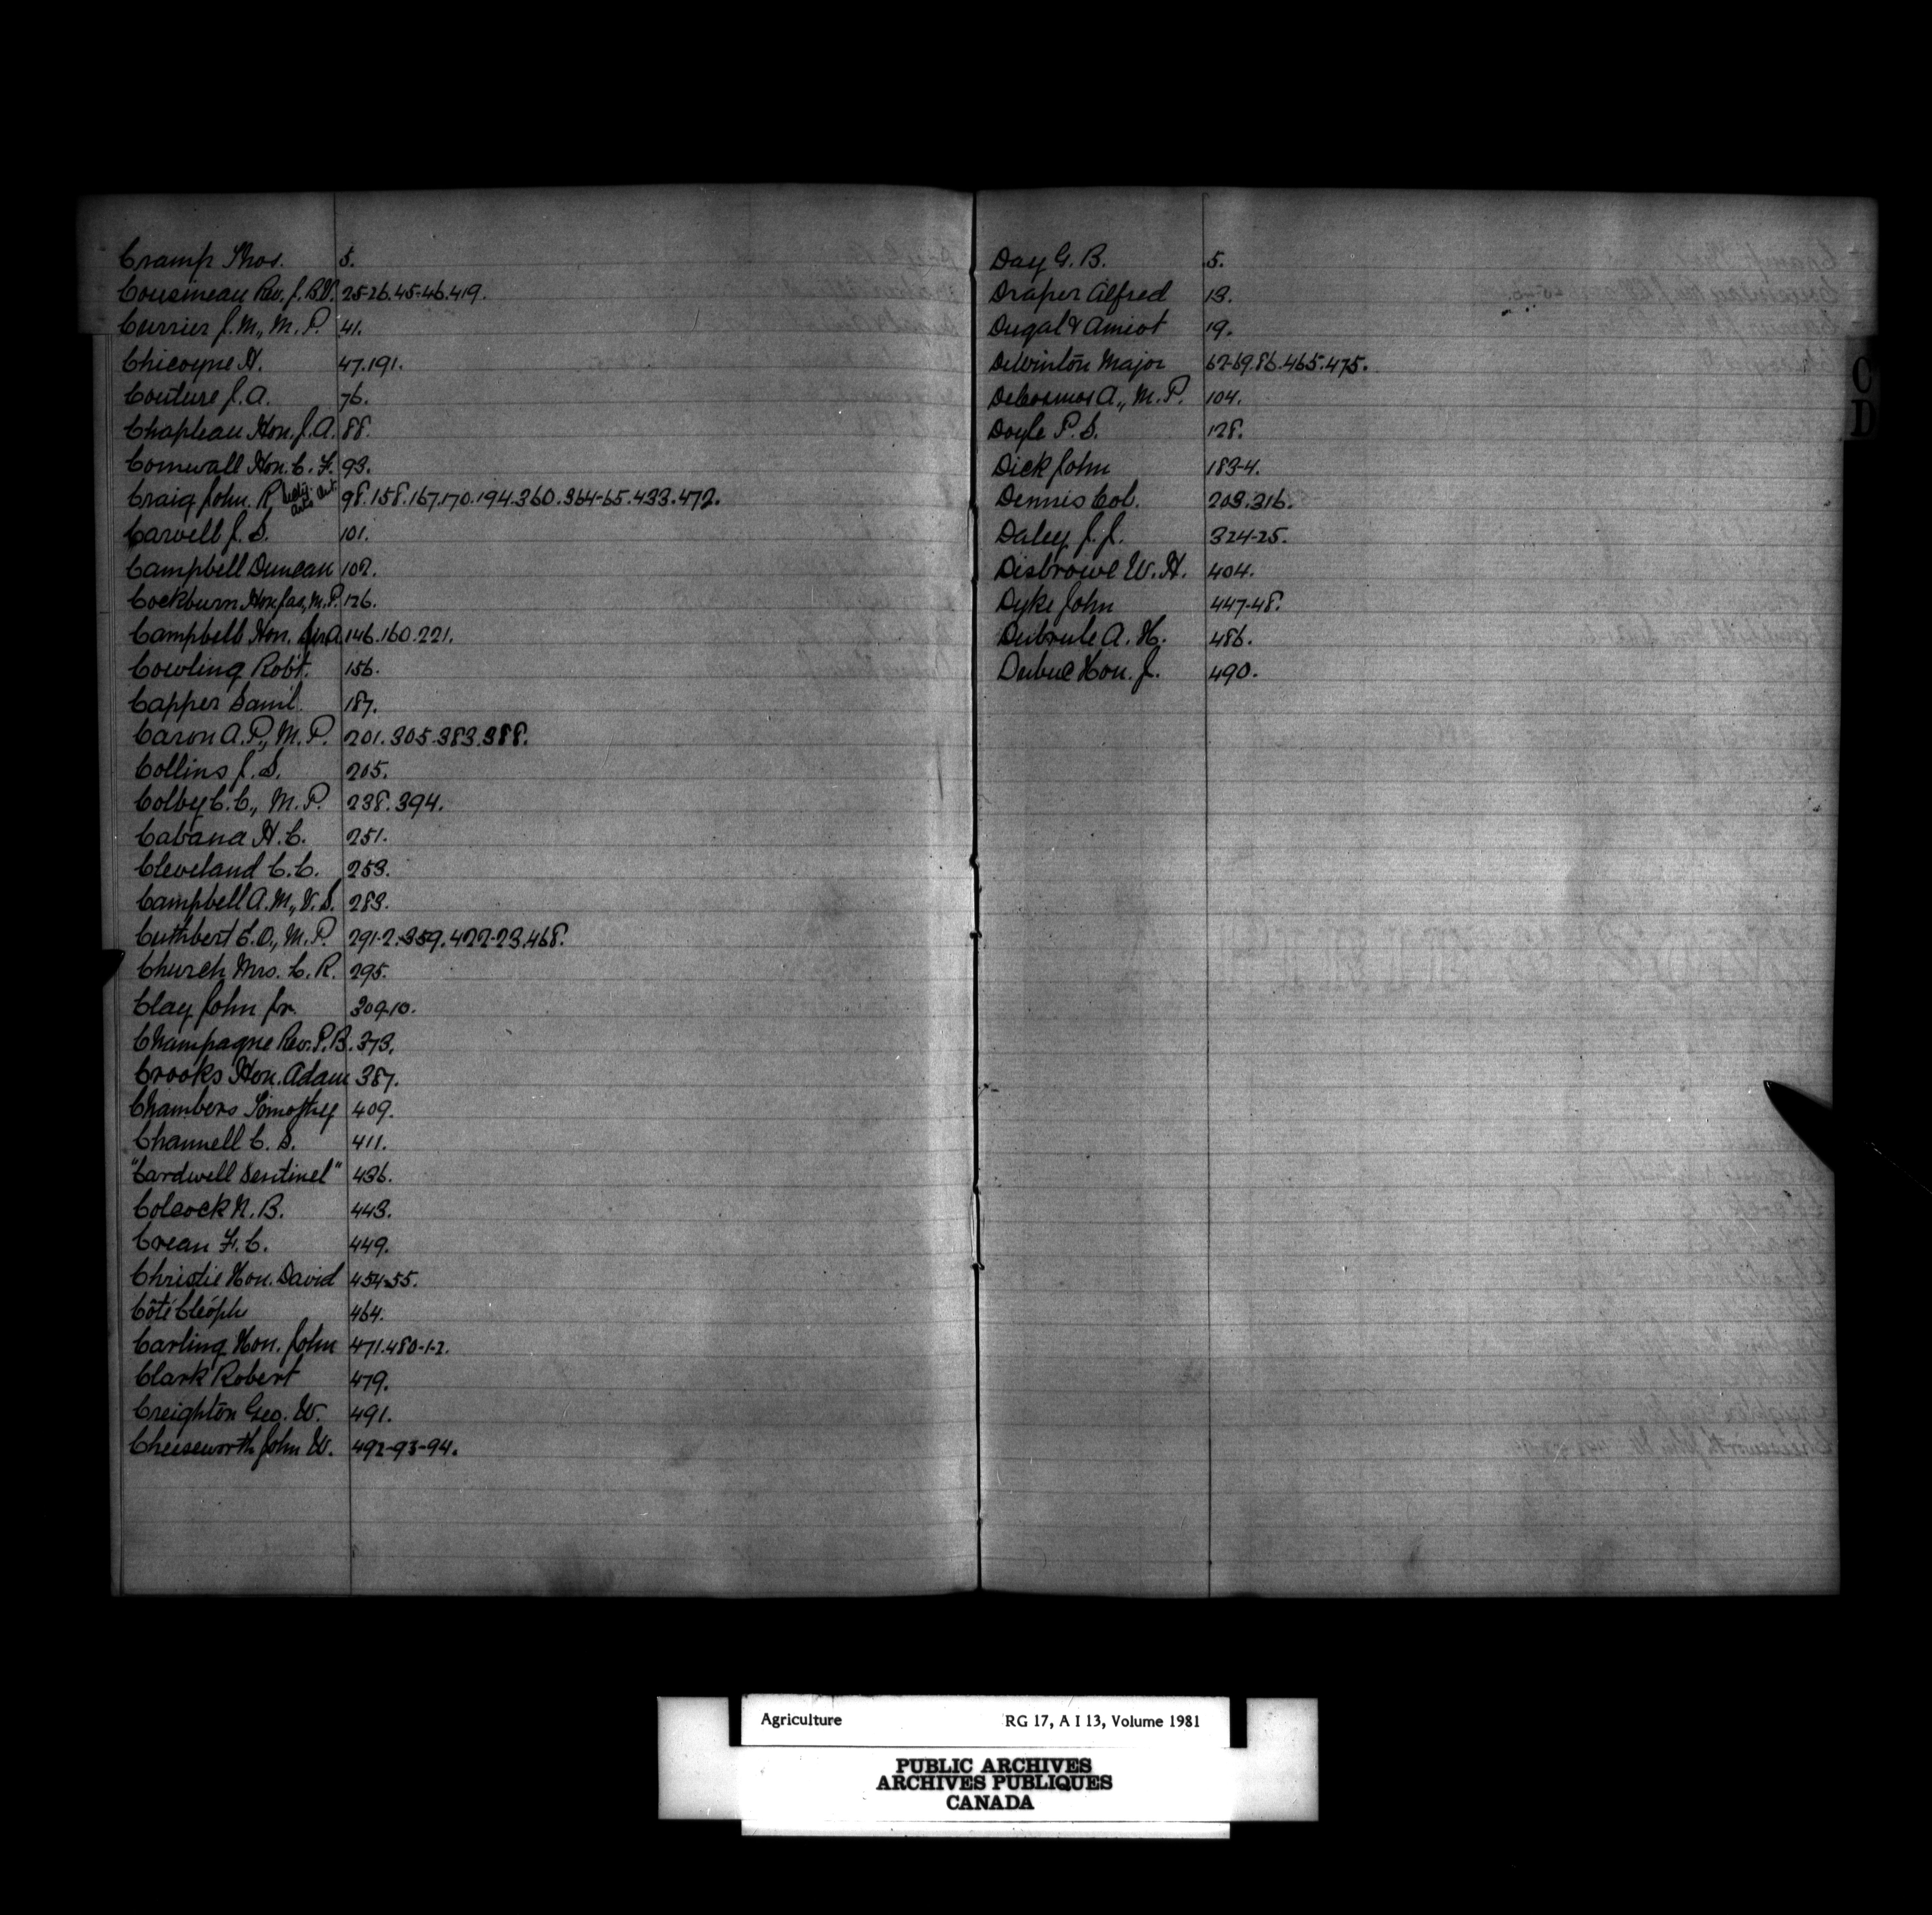 Cramp Thos. 5.
Cousineau Rev. J. B.V. 25-26.45-46.419.
Currier J. M., M. P. 41.
Chicoyne H. 47.191.
Couture J. A. 76.
Chapleau Hon. J. A. 88.
Cornwall Hon. C. F. 93.
Craig John. R 98.158.167.170.194.360.364-65.433.472.
Carvell J. S. 101.
Campbell Duncan 102.
Cockburn Hon. Jas, M. P. 126.
Campbell Hon. Sir A. 146.160.221.
Cowling Robt. 156.
Capper Saml. 187.
Caron A. P., M. P. 201.305.383.388.
Collins J. S. 205.
Colby C. C., M. P. 238.394.
Cabana H. C. 251.
Cleveland C. C. 253.
Campbell A. M., V. S. 283.
Cuthbert E. O., M. P. 291-2.359.422-23.468.
Church Mrs. C. R. 295.
Clay John Jr. 309-10.
Champagne Rev. P. B. 373.
Crooks Hon. Adam 387.
Chambers Timothy 409.
Channell C. S. 411.
"Cardwell Sentinel" 436.
Colcock N. B. 443.
Crean F. C. 449.
Christie Hon. David 454-55.
Côté Cléophe 464.
Carling Hon. John 471.480-1-2.
Clark Robert 479.
Creighton Geo. W. 491.
Cheeseworth John W. 492-93-94.
Day G. B. 5.
Draper Alfred 13.
Dugal & Amiot 19.
DeWinton Major 62-69.86.465.475.
DeCosmos A., M. P. 104.
Doyle P. S. 128.
Dick John 183-4.
Dennis Col. 203.316.
Daley J. J. 324-25.
Disbrowe W. H. 404.
Dyke John 447-48.
Dubrule A. H. 486.
Dubuc Hon. J. 490.
C
D
Agriculture RG 17, A I 13, Volume 1981
PUBLIC ARCHIVES
ARCHIVES PUBLIQUES
CANADA